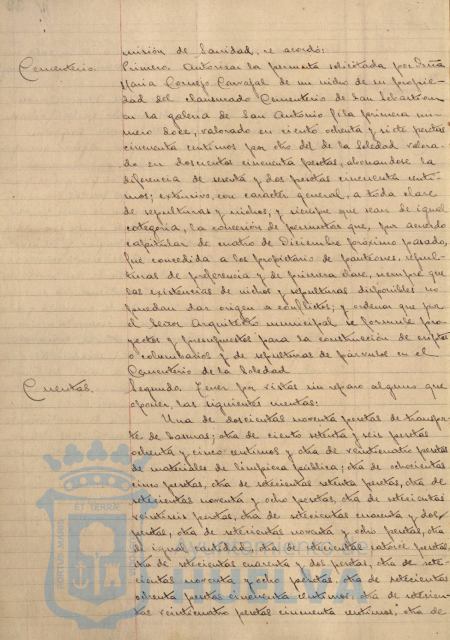 misión de Sanidad, se acordó:
Cementerio. Primero. Autorizar la permuta solicitada por Doña
Maria Cornejo Carvajal de un nicho de su propie-
dad del clausurado Cementerio de San Sebastian
en la galeria de San Antonio fila primera nú-
mero doce, valorado en ciento ochenta y siete pesetas
cincuenta centimos por otro del de la Soledad valora-
do en doscientas cincuenta pesetas, abonandose la
diferencia de sesenta y dos pesetas cincuenta centi-
mos; extensivo, con carácter general, a toda clase
de sepulturas y nichos, y siempre que sean de igual
categoria, la concesión de permutas que, por acuerdo
capitular de cuatro de Diciembre próximo pasado,
fue concedida a los propietario de panteones, sepul-
turas de preferencia y de primera clase, siempre que
las existencias de nichos y sepulturas disponibles no
puedan dar origen a conflictos; y ordenar que por
el Señor Arquitecto municipal se formule pro-
yectos y presupuestos para la construcción de criptas
o columbarios y de sepulturas de párvulos en el
Cementerio de la Soledad
Cuentas. Segundo. Tener por vistas sin reparo alguno que
oponer, las siguientes cuentas:
Una de doscientas noventa pesetas de transpor-
te de basuras; otra de ciento setenta y seis pesetas
ochenta y cinco centimos y otra de veinticuatro pesetas
de materiales de limpieza pública; otra de ochocientas
cinco pesetas, otra de setecientas setenta pesetas, otra de
setecientas noventa y ocho pesetas, otra de setecientas
veintiseis pesetas, otra de setecientas cuarenta y dos
pesetas, otra de setecientas noventa y ocho pesetas, otra
de igual cantidad, otra de setecientas catorce pesetas,
otra de setecientas cuarenta y dos pesetas, otra de sete-
cientas noventa y ocho pesetas, otra de setecientas
ochenta pesetas cincuenta centimos, otra de setecien-
tas veinticuatro pesetas cincuenta centimos, otra de
PORTUS MARIS ET TERRAE
HUELVA